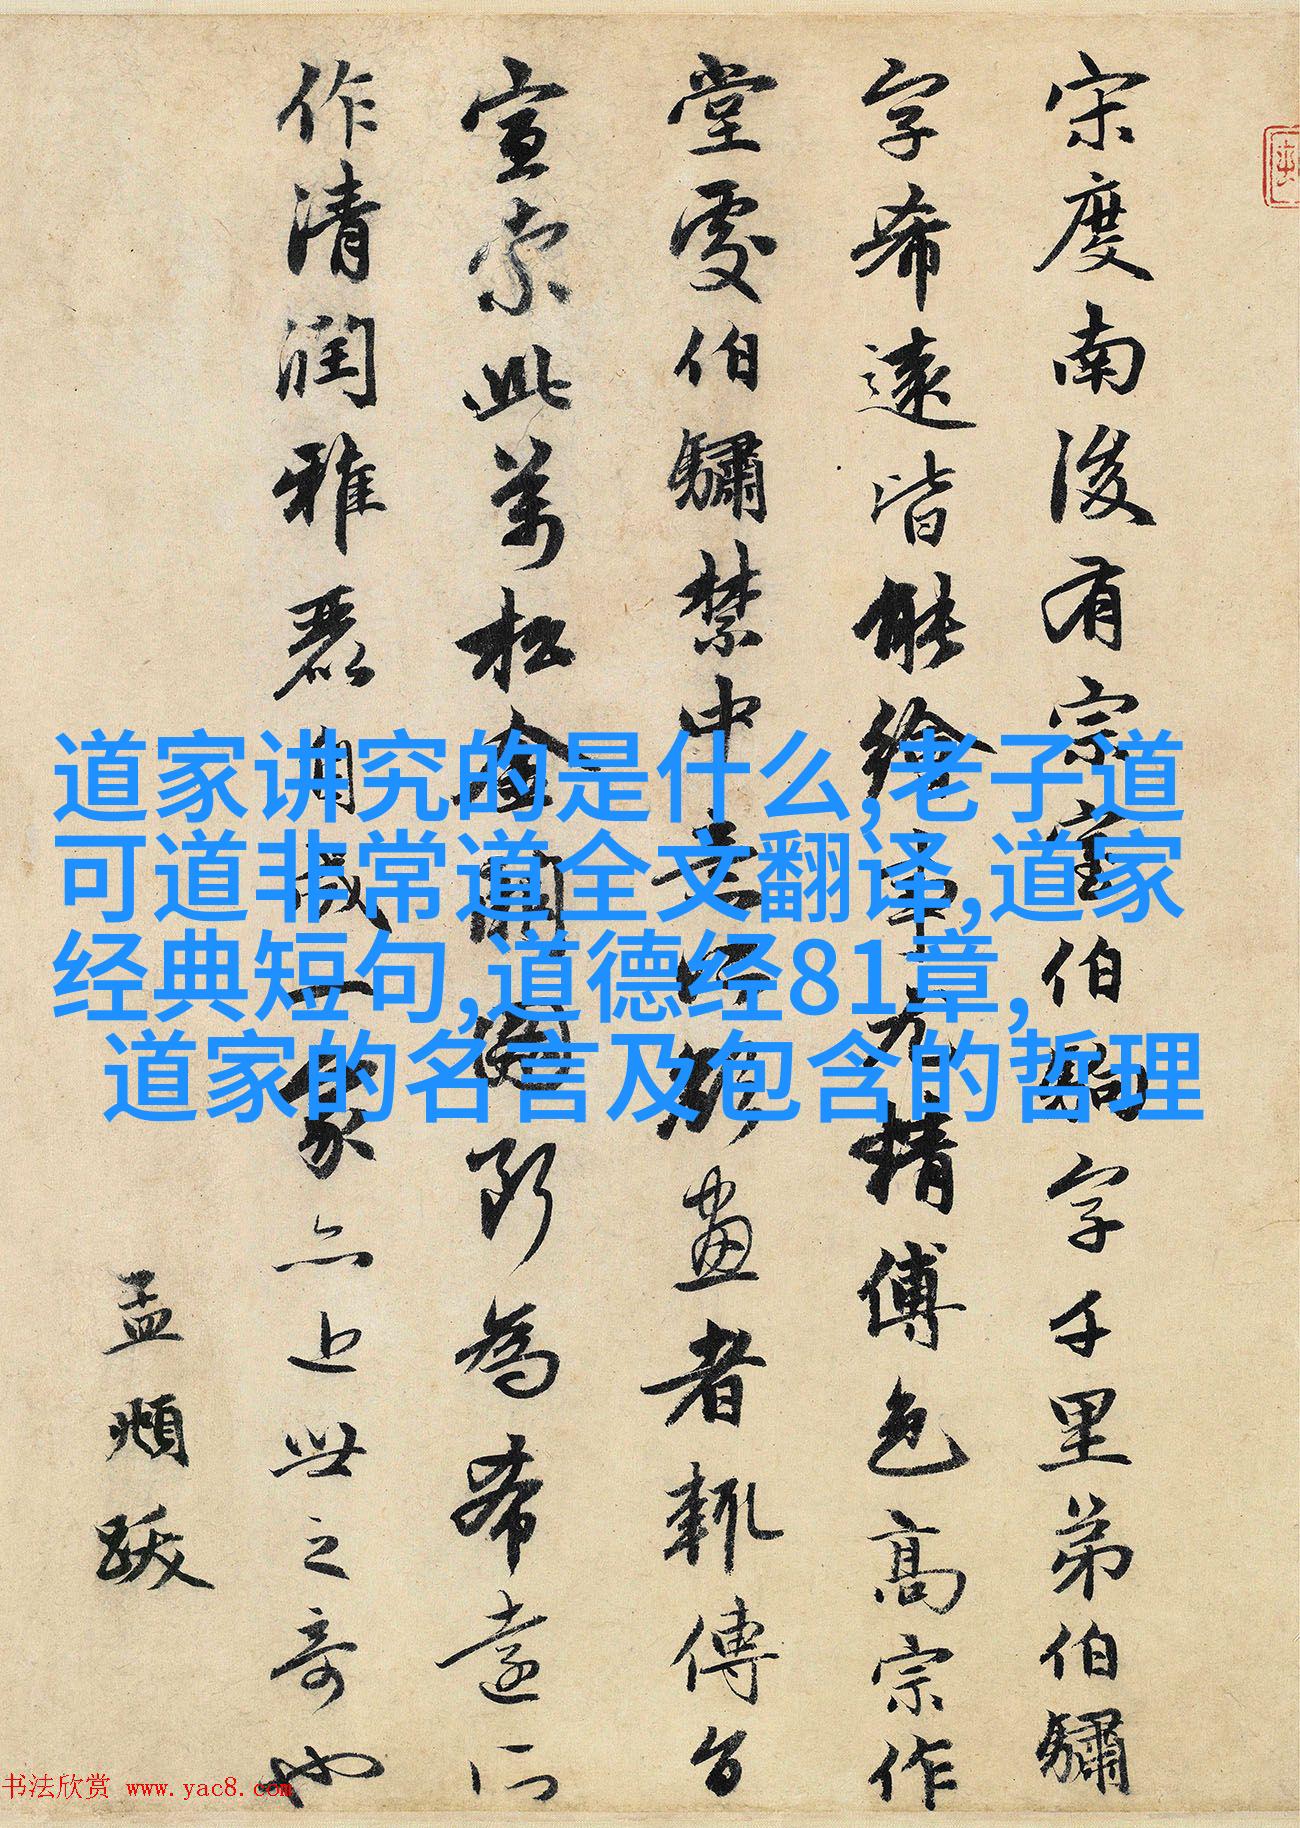 宋度南後有宗室伯駒字千里弟伯驌
字希遠皆能繪事尤精傅色高宗作
堂處伯驌禁中意所欲畫者輒傳旨
宣索此萬松金闕圖斷為希遠所
作清潤雅麗自成一家亦近世之奇也
孟頫跋
道家讲究的是什么,老子道
可道非常道全文翻译,道家
经典短句,道德经81章,
道家的名言及包含的哲理
书法欣赏 www.yac8.com